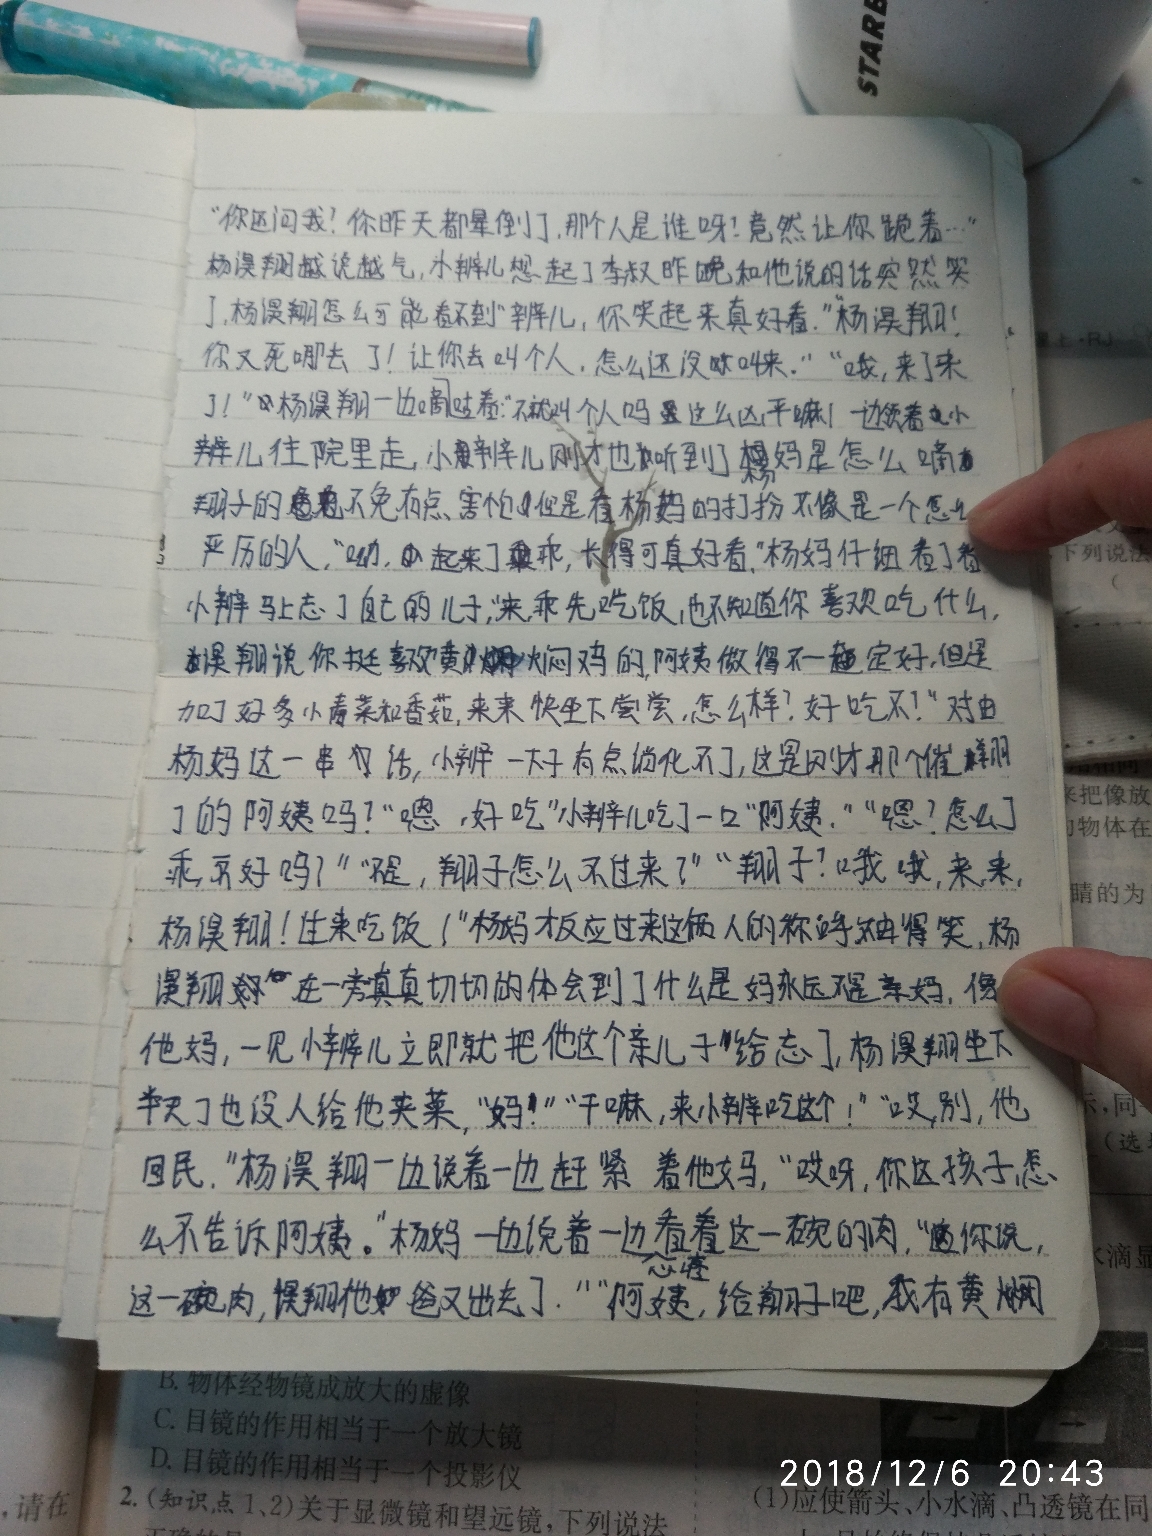 STARB
"你还问我!你昨天都晕倒了,那个人是谁呀!竟然让你跪着…"
杨淏翔越说越气,小辫儿想起了李叔昨晚和他说的话突然笑
了,杨淏翔怎么可能看不到"辫儿,你笑起来真好看.""杨淏翔!
你又死哪去了!让你去叫个人,怎么还没叫来.""哦,来了来
了!"杨淏翔一边嘀咕着:"不就叫个人吗这么凶干嘛!一边领着小
辫儿往院里走,小辫儿刚才也听到了杨妈是怎么嘀
翔子的不免有点害怕但是看杨妈的打扮不像是一个怎么
严历的人,"呦,起来了乖,长得可真好看."杨妈仔细看了看
小辫马上忘了自己的儿子,"来,乖先吃饭,也不知道你喜欢吃什么,
淏翔说你挺喜欢黄焖鸡的,阿姨做得不一定好,但是
加了好多小青菜和香菇,来来快坐下尝尝,怎么样?好吃不!"对由
杨妈这一串的话,小辫一下子有点消化不了,这是刚才那个催翔
了的阿姨吗?"嗯,好吃"小辫儿吃了一口"阿姨.""嗯?怎么了
乖,不好吗?""不是,翔子怎么不过来?""翔子?哦哦,来,来,
杨淏翔!过来吃饭!"杨妈才反应过来这俩人的称呼觉得笑,杨
淏翔在一旁真真切切的体会到了什么是妈永远不是亲妈,像
他妈,一见小辫儿立即就把他这个亲儿子给忘了,杨淏翔坐下
半天了也没人给他夹菜,"妈!""干嘛,来小辫吃这个!""哎,别,他
回民."杨淏翔一边说着一边赶紧着他妈,"哎呀,你这孩子,怎
么不告诉阿姨。"杨妈一边说着一边看着这一碗的肉,"你说,
心疼
这一碗肉,淏翔他爸又出去了.""阿姨,给翔子吧,我有黄焖
下列说法
(
来把像放
的物体在
睛的为
示,同
(选
水滴显
B. 物体经物镜成放大的虚像
C. 目镜的作用相当于一个放大镜
D. 目镜的作用相当于一个投影仪
2. (知识点1、2)关于显微镜和望远镜,下列说法
,请在
(1)应使箭头、小水滴、凸透镜在同
2018/12/6 20:43